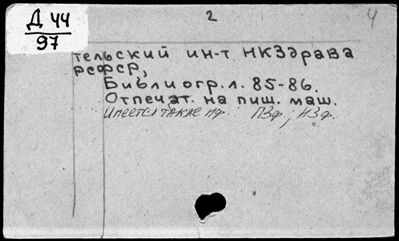 Д 44
97
2
4
тельский ин-т НКЗдрава
РСФСР,
Библиогр. л. 85-86.
Отпечат. на пиш. маш.
Имеется также мф. ПЗф.; НЗф.